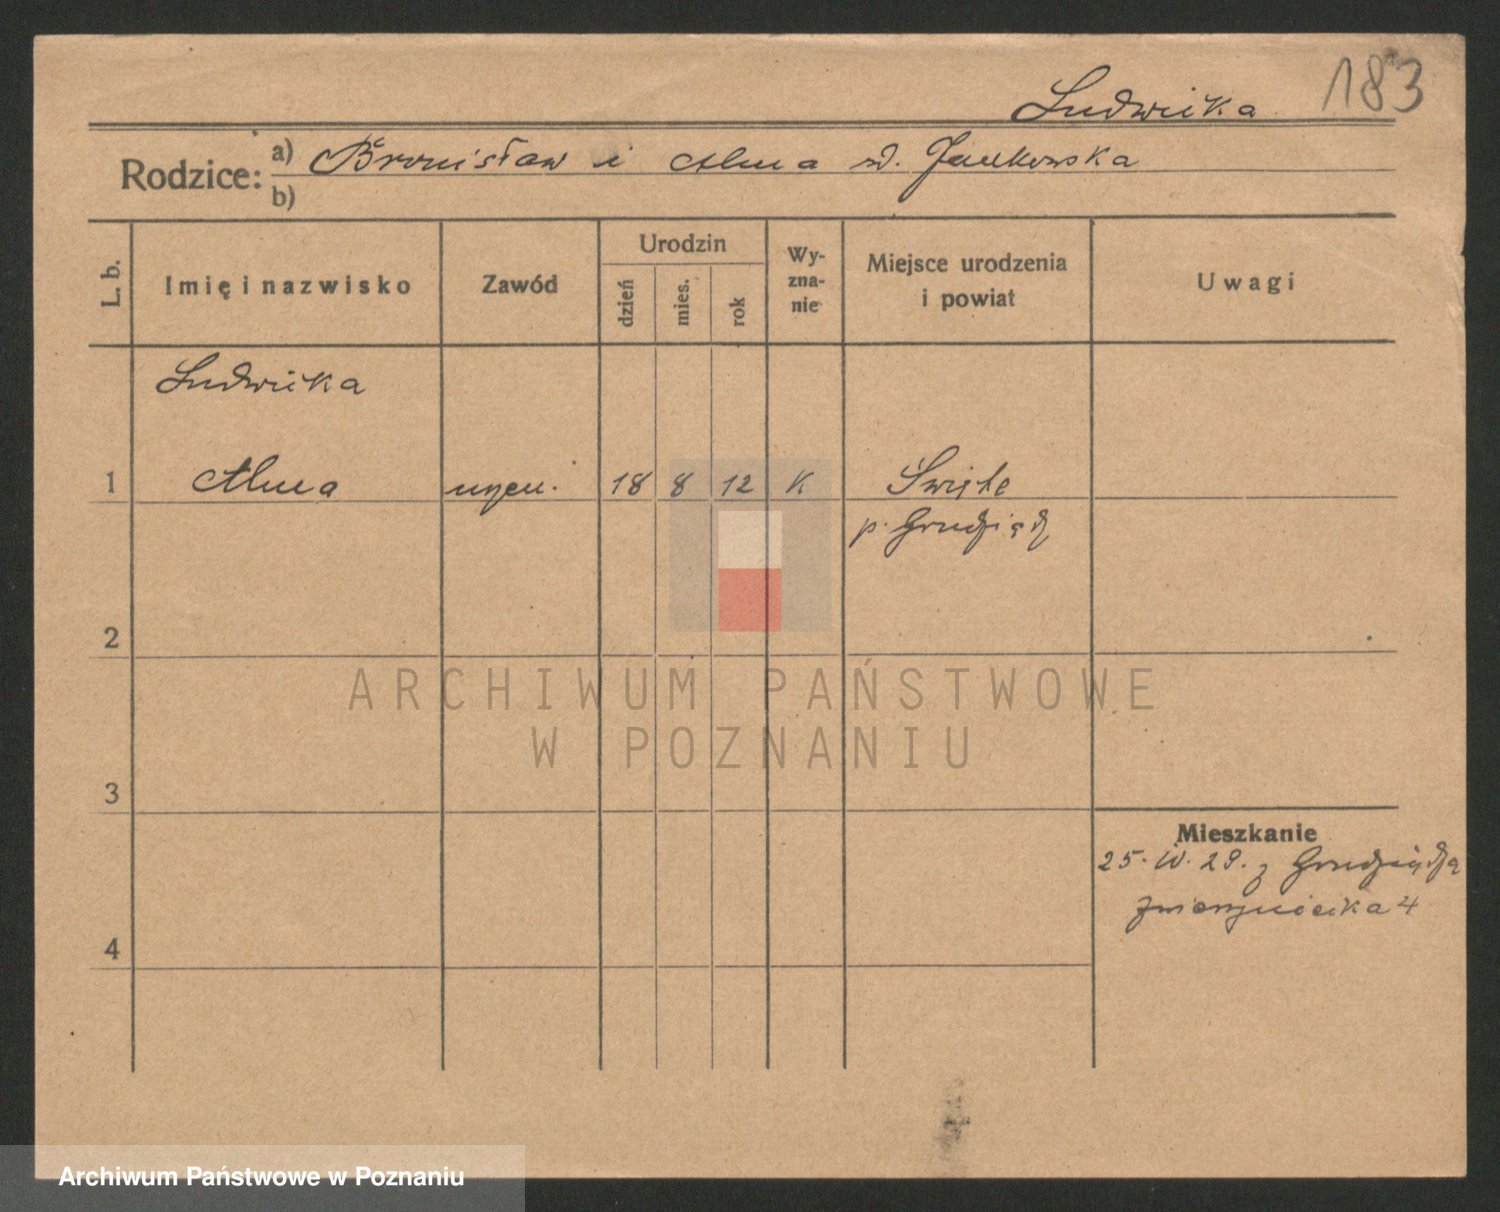 183
Ludwicka
Rodzice: a) Bronisław i Alma zd. Jankowska
b)
L. b.
Imię i nazwisko
Zawód
Urodzin
dzień
mies.
rok
Wy-
zna-
nie
Miejsce urodzenia
i powiat
Uwagi
Ludwicka
1 Alma uczen. 18 8 12 K Święte
p. Grudziądz
2
3
4
Mieszkanie
25. IV. 29. z Grudziądza
Zwierzyniecka 4
ARCHIWUM PAŃSTWOWE
W POZNANIU
Archiwum Państwowe w Poznaniu